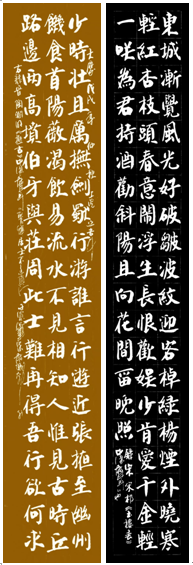 東城漸覺風光好縠皺波紋迎客棹綠楊煙外曉寒
輕紅杏枝頭春意鬧浮生長恨歡娛少肯愛千金輕
一咲為君持酒勸斜陽且向花間留晚照
少時壯且厲撫劍獨行游誰言行遊近張掖至幽州
饑食首陽薇渴飲易流水不見相知人惟見古時丘
路邊兩高墳伯牙與莊周此士難再得吾行欲何求